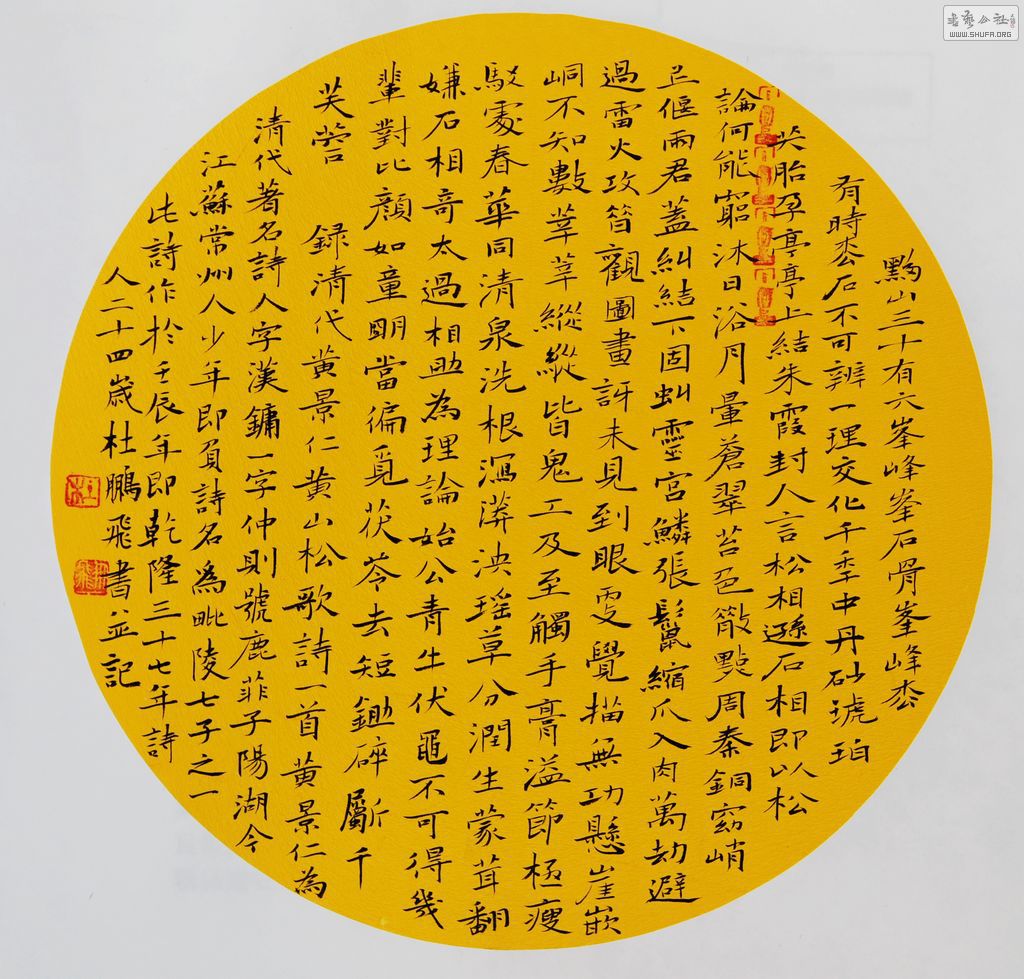 黟山三十有六峯峰峯石骨峯峰枩
有時枩石不可辨一理交化千秊中丹砂琥珀
共胎孕亭亭上結朱霞封人言松相遜石相即以松
論何能窮沐日浴月暈蒼翠苔色散點周秦銅窈峭
上偃雨君蓋糾結下固虯靈宮鱗張鬣縮爪入肉萬劫避
過雷火攻笞觀圖畫訝未見到眼更覺描無功懸崖嵌
峒不知數莘莘縱縱皆鬼工及至觸手膏溢節極瘦
駁處春華同清泉洗根瀉漭泱瑶草分潤生蒙茸翻
嫌石相奇太過相助為理論始公青牛伏黽不可得幾
輩對比顏如童明當徧覓茯苓去短鋤碎斸千
芙蓉 録清代黄景仁黄山松歌詩一首黄景仁為
清代著名詩人字漢鏞一字仲則號鹿菲子陽湖今
江蘇常州人少年即負詩名為毗陵七子之一
此詩作於壬辰年即乾隆三十七年詩
人二十四歲杜鵬飛書並記
WWW.SHUFA.ORG